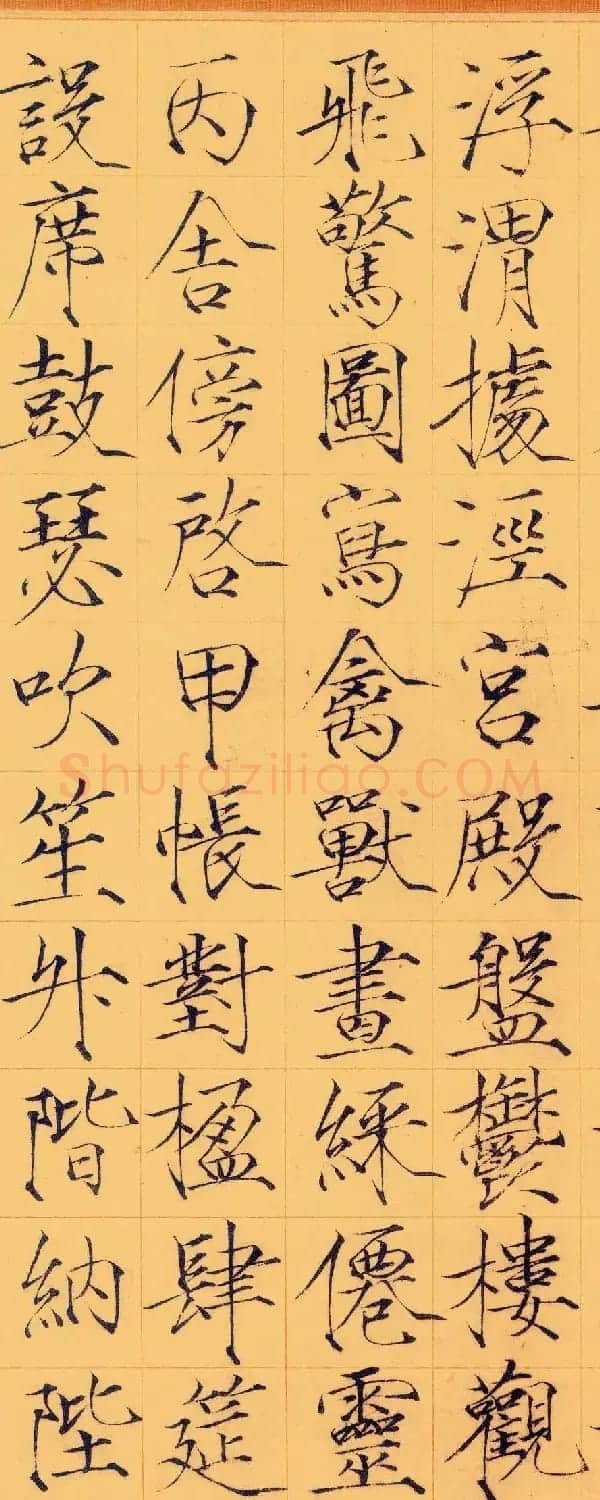 浮渭據涇宮殿盤欝樓觀
飛驚圖寫禽獸畫綵僊靈
丙舍傍啓甲帳對楹肆筵
設席鼓瑟吹笙升階納陛
Shufaziliao.COM